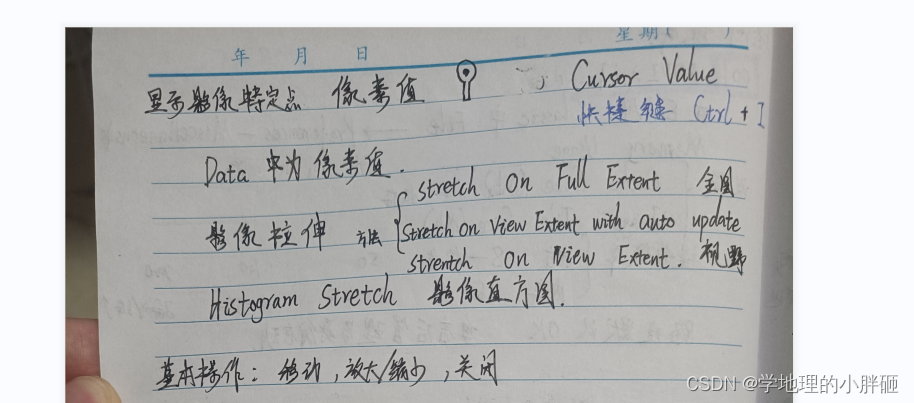 星期( )
年 月 日
显示影像特定点 像素值 Cursor Value
快捷键 Ctrl + I
Data 中为像素值.
stretch On Full Extent 全图
影像拉伸 方法 { Stretch on View Extent with auto update
strentch On View Extent. 视野
Histogram Stretch 影像直方图.
基本操作: 移动, 放大/缩少, 关闭
CSDN @学地理的小胖砸